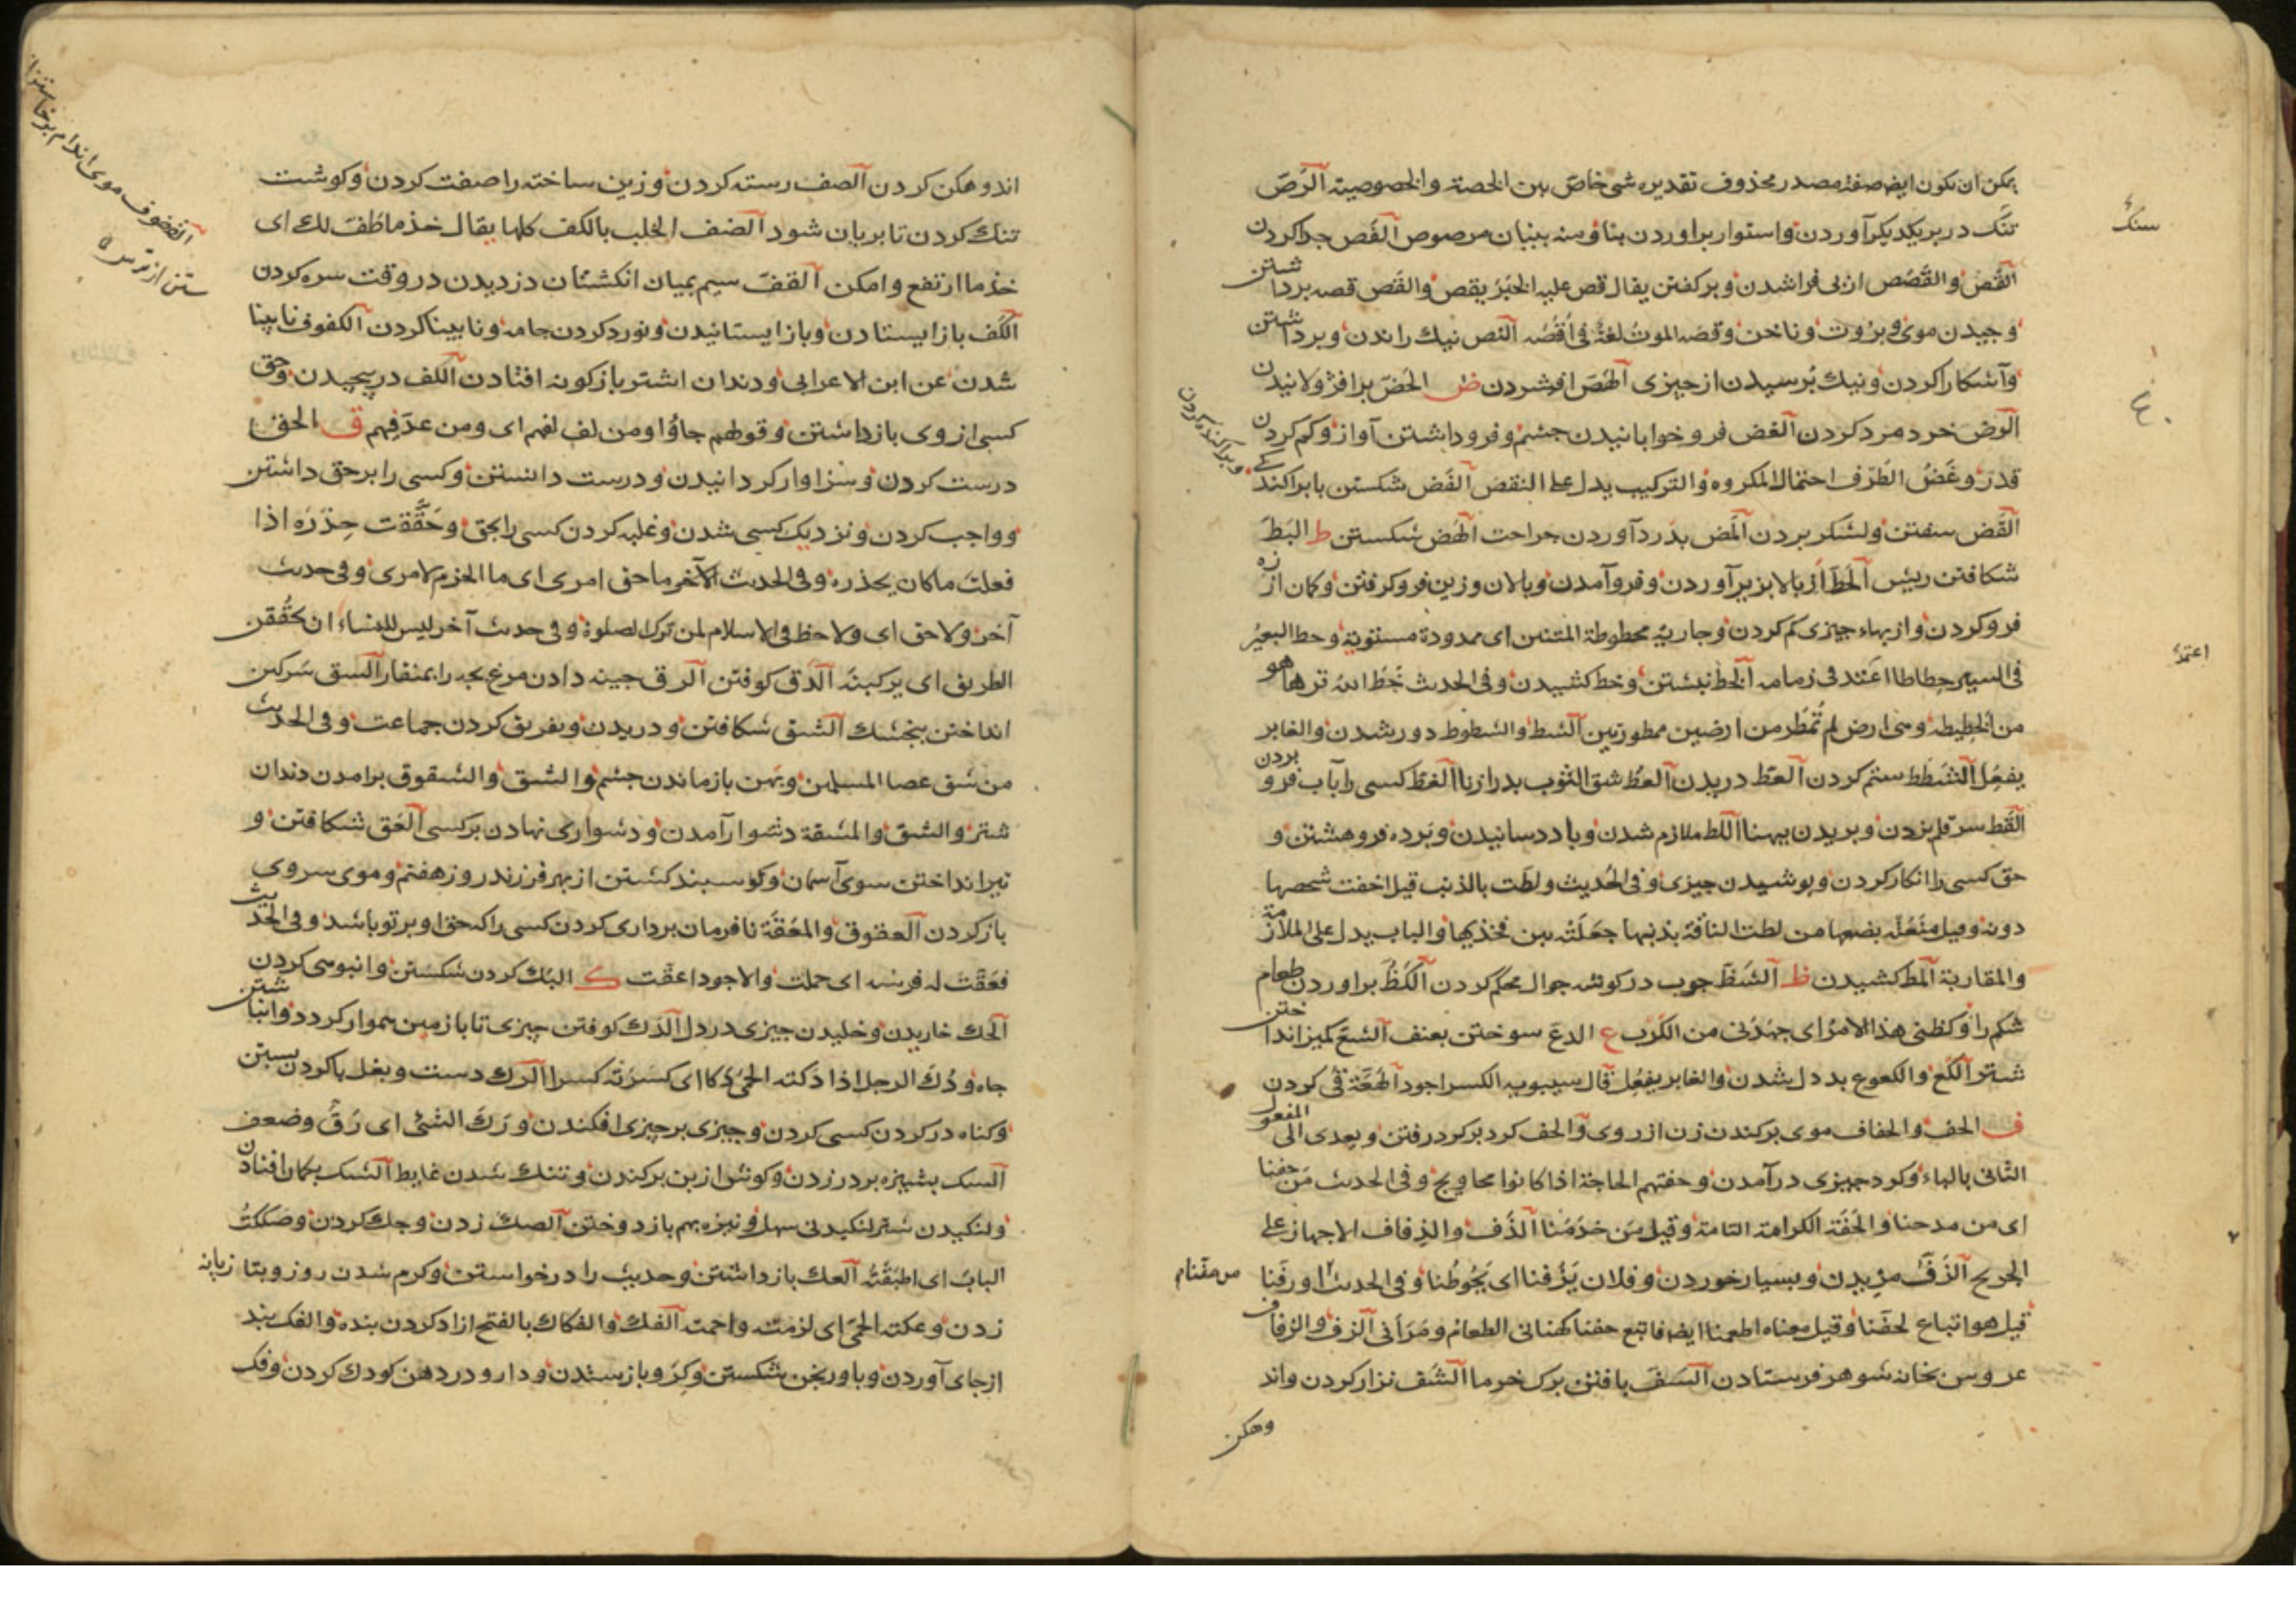 یمکن ان یکون ایضا صفة مصدر محذوف تقدیره شی خاصّ بین الخصة والخصوصیة الرَصّ
تنک در یکدیکر آوردن واستوار براوردن بنا ومنه بنیان مرصوص الفَص جدا کردن
القَصّ والقَصَص از پی فراشدن وبرکفتن یقال قص علیه الخبَرَ یقص والقَص قصه برداشتن
وجیدن موی وبرُوت وناخن وقصه الموت لغةٌ فی اَقَصّه النص نیک راندن وبرداشتن
وآشکارا کردن ونیک پُرسیدن از جیزی الهَصّ افشردن ض الحَضّ برافژولانیدن
الرَض خرد مرد کردن الغض فروخوابانیدن جشم وفروداشتن آواز وکم کردن
قدرْ وغَضُّ الطَرْف احتمال المکروه والترکیب یدل علی النقض الفَض شکستن با براکندکی
القَض سفتن ولشکر بردن المَض بدَرد آوردن جراحت الهَض شکستن ط البَطّ
شکافتن ریش الحَطّ از بالا بزیر آوردن وفروآمدن وبالان وزین فروکرفتن وکمان از زه
فروکردن واز بهاء جیزی کم کردن وجاریة محطوطة المتنین ای ممدودة مستویة وحط البعیرُ
فی السیر حِطاطا اعتمد فی زمامه الخَطّ نبشتن وخط کشیدن وفی الحدیث خَطّ الله نوءها هو
من الخطیطه وهی ارض لم تُمطَر من ارضین ممطورتین الشط والشطوط دور شدن والغابر
یفعِل الشَطَط ستم کردن العَط دریدن العَطّ شق الثوب بدرازنا الغَطّ کسی را بآب فروبردن
القَط سر قلم بزدن وبریدن بپهنا اللط ملازم شدن وباددسانیدن وپرده فروهشتن و
حق کسی را انکار کردن وپوشیدن جیزی وفی الحدیث ولطت بالذنب قیل اخفت شخصها
دونه وقیل منَعَتْه بضعها من لطت الناقة بذنبها جعَلَتْه بین فخذیها والباب یدل علی الملازمة
والمقاربة المط کشیدن ظ الشَظّ جوب در کوشه جوال محکم کردن الکَظّ براوردن طعام
شکم را وکظنی هذا الامر ای جهَدَنی من الکَرب ع الدعّ سوختن بعنف الشَعّ کمیز انداختن
شتر الکَعّ والکعوع بددل شدن والغابر یفعِل قال سیبویه الکسر اجود الهَعّة قی کردن
ف الحف والحفاف موی برکندن زن از روی والحف کرد برکرد رفتن ویعدی الی المفعول
الثانی بالباء وکرد جیزی درآمدن وحفتهم الحاجة اذا کانوا محاویج وفی الحدیث مَن حفنا
ای من مدحنا والحَفّة الکرامة التامة وقیل مَن خدَمنا الذَف والذِفاف الاجهاز علی
الجریح الرَفّ مزیدن وبسیار خوردن وفلان یَرُفنا ای یَحُوطُنا وفی الحدیث او رَفنا
قیل هو اتباع لحفّنا وقیل معناه اطعمنا ایضا فاتبع حفنا کهنانی الطعام ومَرَأنی الزف والزفاف
عروس بخانه شوهر فرستادن السَفّ بافتن برک خرما الشَف نزار کردن واند
وهکن
سنک
ع
اعتمدَ
وپراکنده کردن
اندوهکن کردن الصف رسته کردن وزین ساخته را صفت کردن وکوشت
تنک کردن تا بریان شود الضف الحلب بالکف کلها یقال خذ ما طَفّ لک ای
خذ ما ارتفع وامکن القَفّ سیم بمیان انکشتان دزدیدن در وقت سره کردن
الکَف باز ایستادن وباز ایستانیدن ونورد کردن جامه ونابینا کردن الکفوف نابینا
شدن عن ابن الاعرابی ودندان اشتر باز کونه افتادن اللف درپیچیدن وحق
کسی از وی بازداشتن وقولهم جاؤا ومن لف لفهم ای ومن عدّ فیهم ق الحق
درست کردن وسزاوار کردانیدن ودرست دانستن وکسی را بر حق داشتن
وواجب کردن ونزدیک کسی شدن وغلبه کردن کسی را بحق وحَقّقت حِذْرَه اذا
فعلت ما کان یحذره وفی الحدیث الآخر ما حق امری ای ما الحزم لامری وفی حدیث
آخر ولا حق ای ولا حظ فی الاسلام لمن ترک الصلوة وفی حدیث آخر لیس للنساء ان یحقُقن
الطریق ای یرکبنه الدَق کوفتن الزق جینه دادن مرغ بجه را بمنقار السق سرکین
انداختن بنجشک الشق شکافتن ودریدن وتفریق کردن جماعت وفی الحدیث
من شق عصا المسلمین وپهن بازماندن جشم والشق والشقوق برامدن دندان
شتر والشق والمشقة دشوار آمدن ودشواری نهادن بر کسی العَق شکافتن و
تیر انداختن سوی آسمان وکوسبند کشتن از بهر فرزند روز هفتم وموی سر وی
باز کردن العقوق والمعَقّة نافرمان برداری کردن کسی را که حق او بر تو باشد وفی الحدیث
فعَقّت له فرسه ای حملت والاجود اعقّت ک البَک کردن شکستن وانبوهی کردن
الحک خاریدن وخلیدن جیزی در دل الدَک کوفتن جیزی تا با زمین هموار کردد وانباشتن
جاه ودُکّ الرجل اذا دکته الحمیّ دَکا ای کسَرَته کسرا الرک دست وبغل باکردن بستن
وکناه در کردن کسی کردن وجیزی بر جیزی افکندن ورَکّ الشیٔ ای رَقّ وضعف
السک بشیزه بر در زدن وکوش از بن برکندن وتنک شدن غایط الشک بکمان افتادن
ولنکیدن شتر لنکیدنی سهل ونیزه بهم باز دوختن الصک زدن وجک کردن وصَککتُ
البابَ ای اطبَقْتُه العک بازداشتن وحدیث را درخواستن وکرم شدن روز وبتازیانه
زدن وعکته الحمیّ ای لزمته واحمته الفک والفکاک بالفتح ازاد کردن بنده والفک بند
از جای آوردن وباورنجن شکستن وکرو باز ستدن ودارو در دهن کودک کردن وفک
القفوف موی اندام برخاستن از
ترس